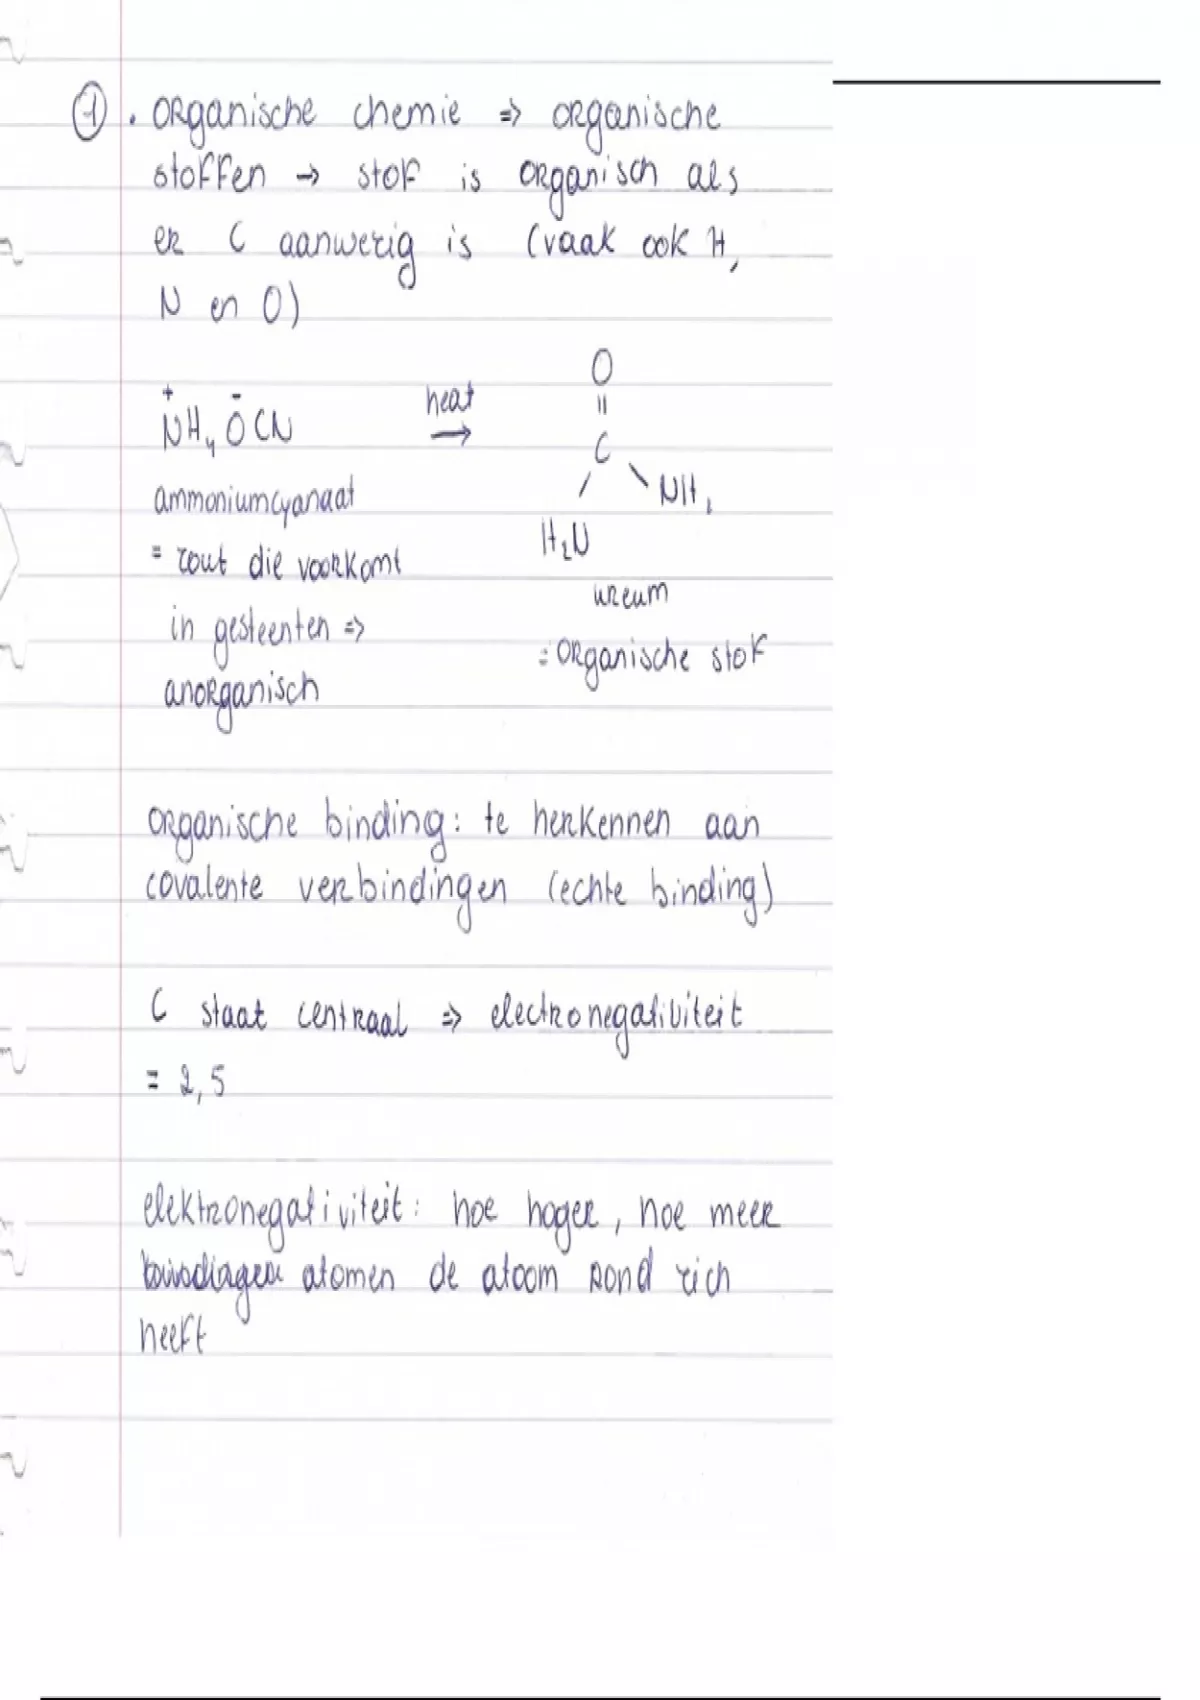 ① . organische chemie => organische
stoffen -> stof is organisch als
er C aanwezig is (vaak ook H,
N en O)
O
+ - heat ||
NH4 OCN → C
/ \
ammoniumcyanaat NH2
= zout die voorkomt H2N
in gesteenten => ureum
anorganisch = organische stof
organische binding: te herkennen aan
covalente verbindingen (echte binding)
C staat centraal => electronegativiteit
= 2,5
elektronegativiteit: hoe hoger, hoe meer
atomen de atoom rond zich
heeft